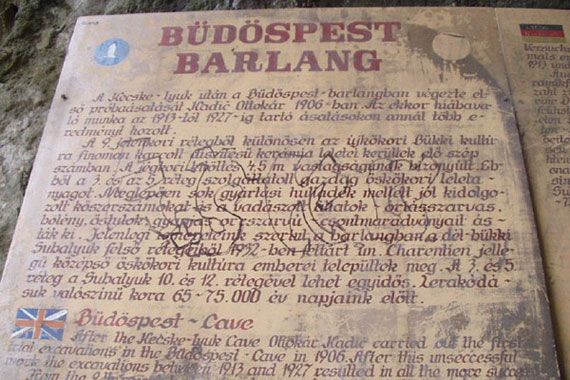 BÜDÖSPEST
BARLANG
A Kecske-lyuk után a Büdöspest-barlangban végezte el-
ső próbaásatását Kadić Ottokár 1906-ban. Az ekkor hiábava-
ló munka az 1913-tól 1927-ig tartó ásatásokon annál több e-
redményt hozott.
A 9. jelenkori rétegből különösen az újkőkori Bükki kultú-
ra finoman karcolt díszítésű kerámia leletei kerültek elő szép
számban. A jégkori kitöltés 4,5 m vastagságúnak bizonyult. Eb-
ből a 3. és az 5. réteg szolgáltatott gazdag őskőkori leleta-
nyagot. Meglepően sok gyártási hulladék mellett jól kidolgo-
zott kőszerszámokat és a vadászott állatok - óriásszarvas,
bölény, őstulok, gyapjas orrszarvú - csontmaradványait ás-
ták ki. Jelenlegi ismereteink szerint a barlangban a dél-bükki
Subalyuk felső rétegeiből 1932-ben feltárt ún. Charentien jelle-
gű középső őskőkori kultúra emberei települtek meg. A 3. és 5.
réteg a Subalyuk 10. és 12. rétegével lehet egyidős. Lerakódá-
suk valószínű kora 65-75.000 év napjaink előtt.
Büdöspest-Cave
After the Kecske-lyuk Cave Ottokár Kadic carried out the first
trial excavations in the Büdöspest-Cave in 1906. After this unseccessful
work the excavations between 1913 and 1927 resulted in all the more success.
From the 9.
Versuchs
mals er
1913 und